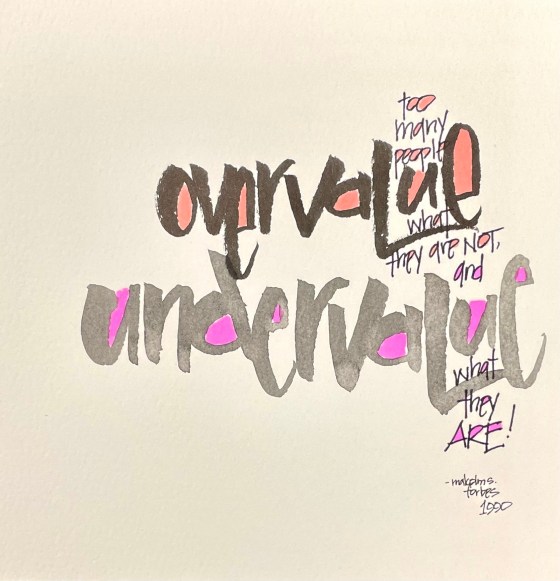 too
many
people
overvalue
what
they are NOT,
and
undervalue
what
they
ARE!
-malcolm s.
forbes
1990